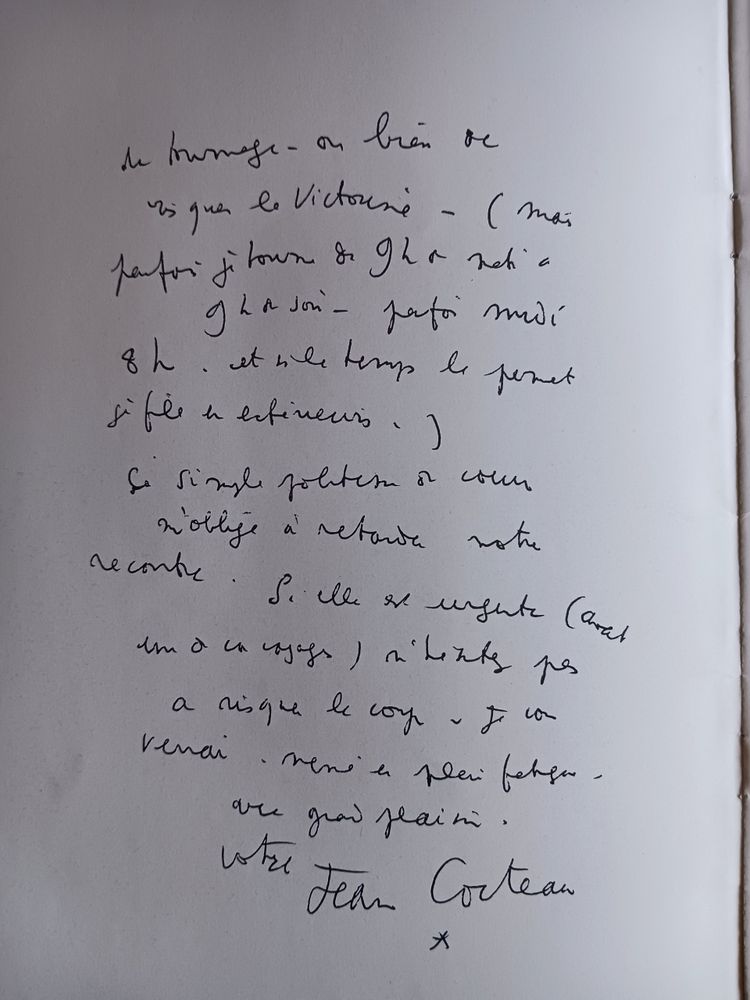 de tournage - ou bien de
risquer la Victorine - (mais
parfois je tourne de 9 h du matin a
9 h du soir - parfois midi
8 h. et si le temps le permet
je file en extérieurs.)
La simple politesse de cœur
m'oblige à retarder notre
rencontre. Si elle est urgente (avant
un de vos voyages) n'hésitez pas
a risquer le coup. Je vous
verrai. même en pleine fatigue -
avec grand plaisir.
votre Jean Cocteau
*